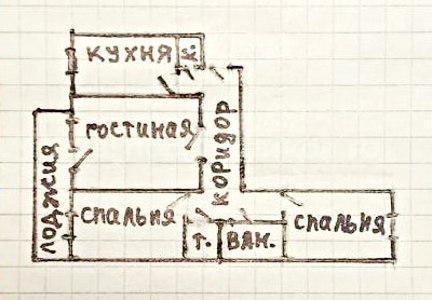 кухня
к.
гостиная
коридор
лоджия
спальня
т.
ван.
спальня